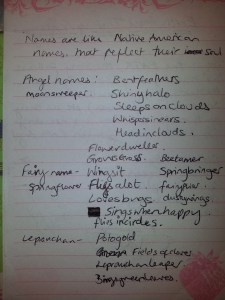 Names are like Native American
names, that reflect their soul
Angel names: Bentfeathers
moonsweeper. Shinyhalo
Sleepsonclouds
Whispersinears.
Headinclouds.
Flowerdweller.
Growsgrass. Beetamer
Fairy name - Wingsit Springbringer
Springflower Flysalot. fairyair
Lovesbugs dustywings.
Singswhenhappy
fliesincircles.
Leprechan - Potogold
Fieldsofclover
Leprauchanleaper